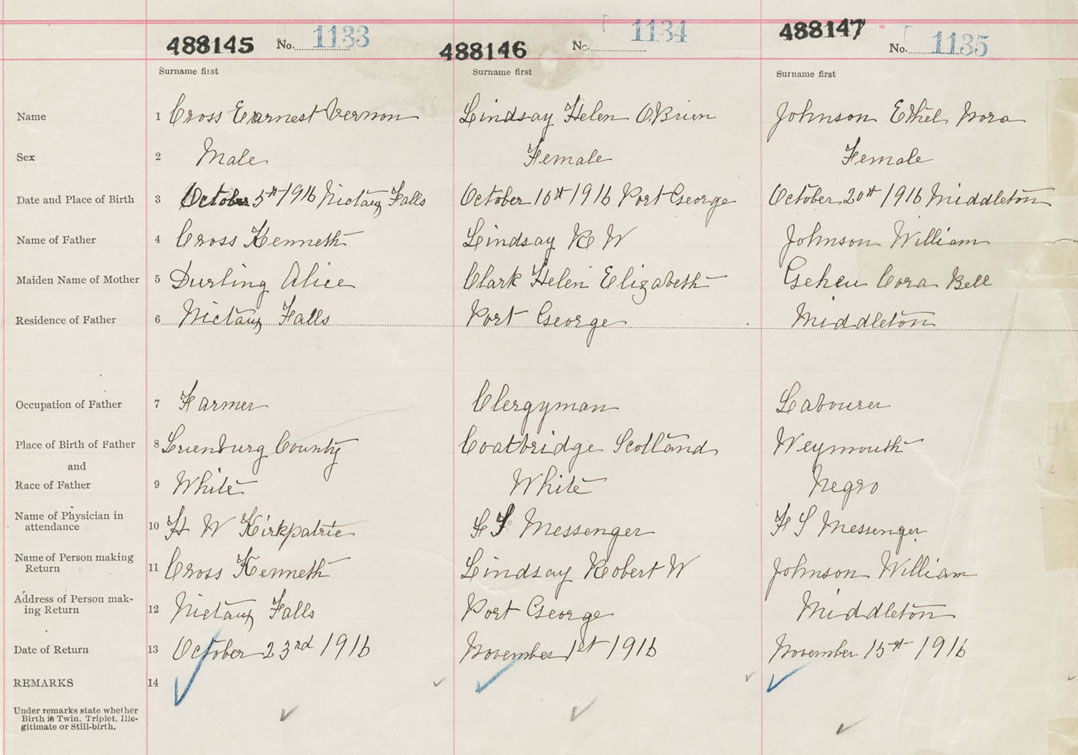 488145 No. 1133 488146 No. 1134 488147 No. 1135
Surname first Surname first Surname first
Name 1 Cross Earnest Vernon Lindsay Helen OBrien Johnson Ethel Nora
Sex 2 Male Female Female
Date and Place of Birth 3 October 5th 1916 Nictaux Falls October 10th 1916 Port George October 20th 1916 Middleton
Name of Father 4 Cross Kenneth Lindsay R W Johnson William
Maiden Name of Mother 5 Durling Alice Clark Helen Elizabeth Cora Bell
Residence of Father 6 Nictaux Falls Port George Middleton
Occupation of Father 7 Farmer Clergyman Labourer
Place of Birth of Father 8 Luenburg County Coatbridge Scotland Weymouth
and
Race of Father 9 White White Negro
Name of Physician in
attendance 10 H W Kirkpatric F S Messenger F S Messenger
Name of Person making
Return 11 Cross Kenneth Lindsay Robert W Johnson William
Address of Person mak-
ing Return 12 Nictaux Falls Port George Middleton
Date of Return 13 October 23rd 1916 November 1st 1916 November 15th 1916
REMARKS 14
Under remarks state whether
Birth is Twin, Triplet, Ille-
gitimate or Still-birth.